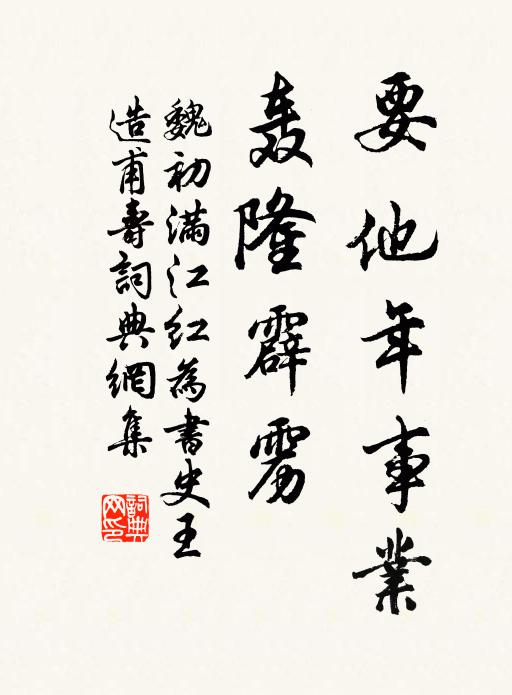 要他年事業
轰隆霹雳
魏初滿江紅為書史王
造甫壽詞典網集
詞典网印